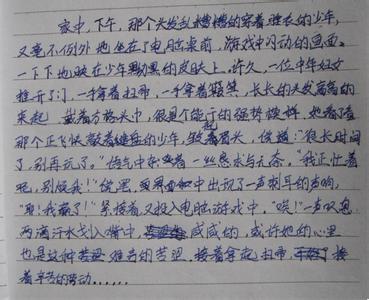 家中,下午,那个头发乱糟糟的穿着睡衣的少年,
又毫不例外地坐在了电脑桌前,游戏中闪动的画面,
一下下地映在少年黝黑的皮肤上,许久,一位中年妇女
推开了门,一手拿着扫帚,一手拿着,长长的头发高高的
束起,戴着方格头巾,很是个能干的强势模样,她看了看
那个正飞快敲着键盘的少年,皱起眉头,傻道:"很长时间
了,别再玩了。"语气中带着一丝恳求与无奈。"我正忙着
呢,别烦我!"傻黑,中出现了一声刺耳的声响,
"耶!我赢了!"紧接着又投入电脑游戏中,"唉!"一声叹息,
两滴汗水划入嘴中,咸咸的,或许她的心里
也是这种难言的苦涩,接着拿起扫帚,接
着辛苦的劳动......